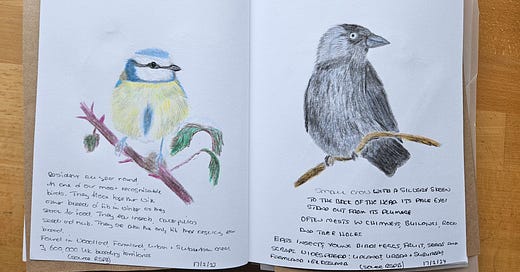 Resident all year round
is one of our most recognisable
birds. They flock together with
other breeds of tit in winter as they
search for food. They eat insects, caterpillars
seeds and nuts. They are also the only UK bird
Found in Woodland Farmland Urban + Suburban areas
3 600 000 UK breeding territories
(source RSPB) 17/2/23
Small crow with a silvery sheen
to the back of the head its pale eye
stand out from its plumage
Often nests in chimneys, buildings, rock
and tree holes
Eats insects young birds + eggs, fruit, seeds and
scraps widespread: Upland Urban + Suburban
Farmland + Grassland
(source RSPB) 17/2/23